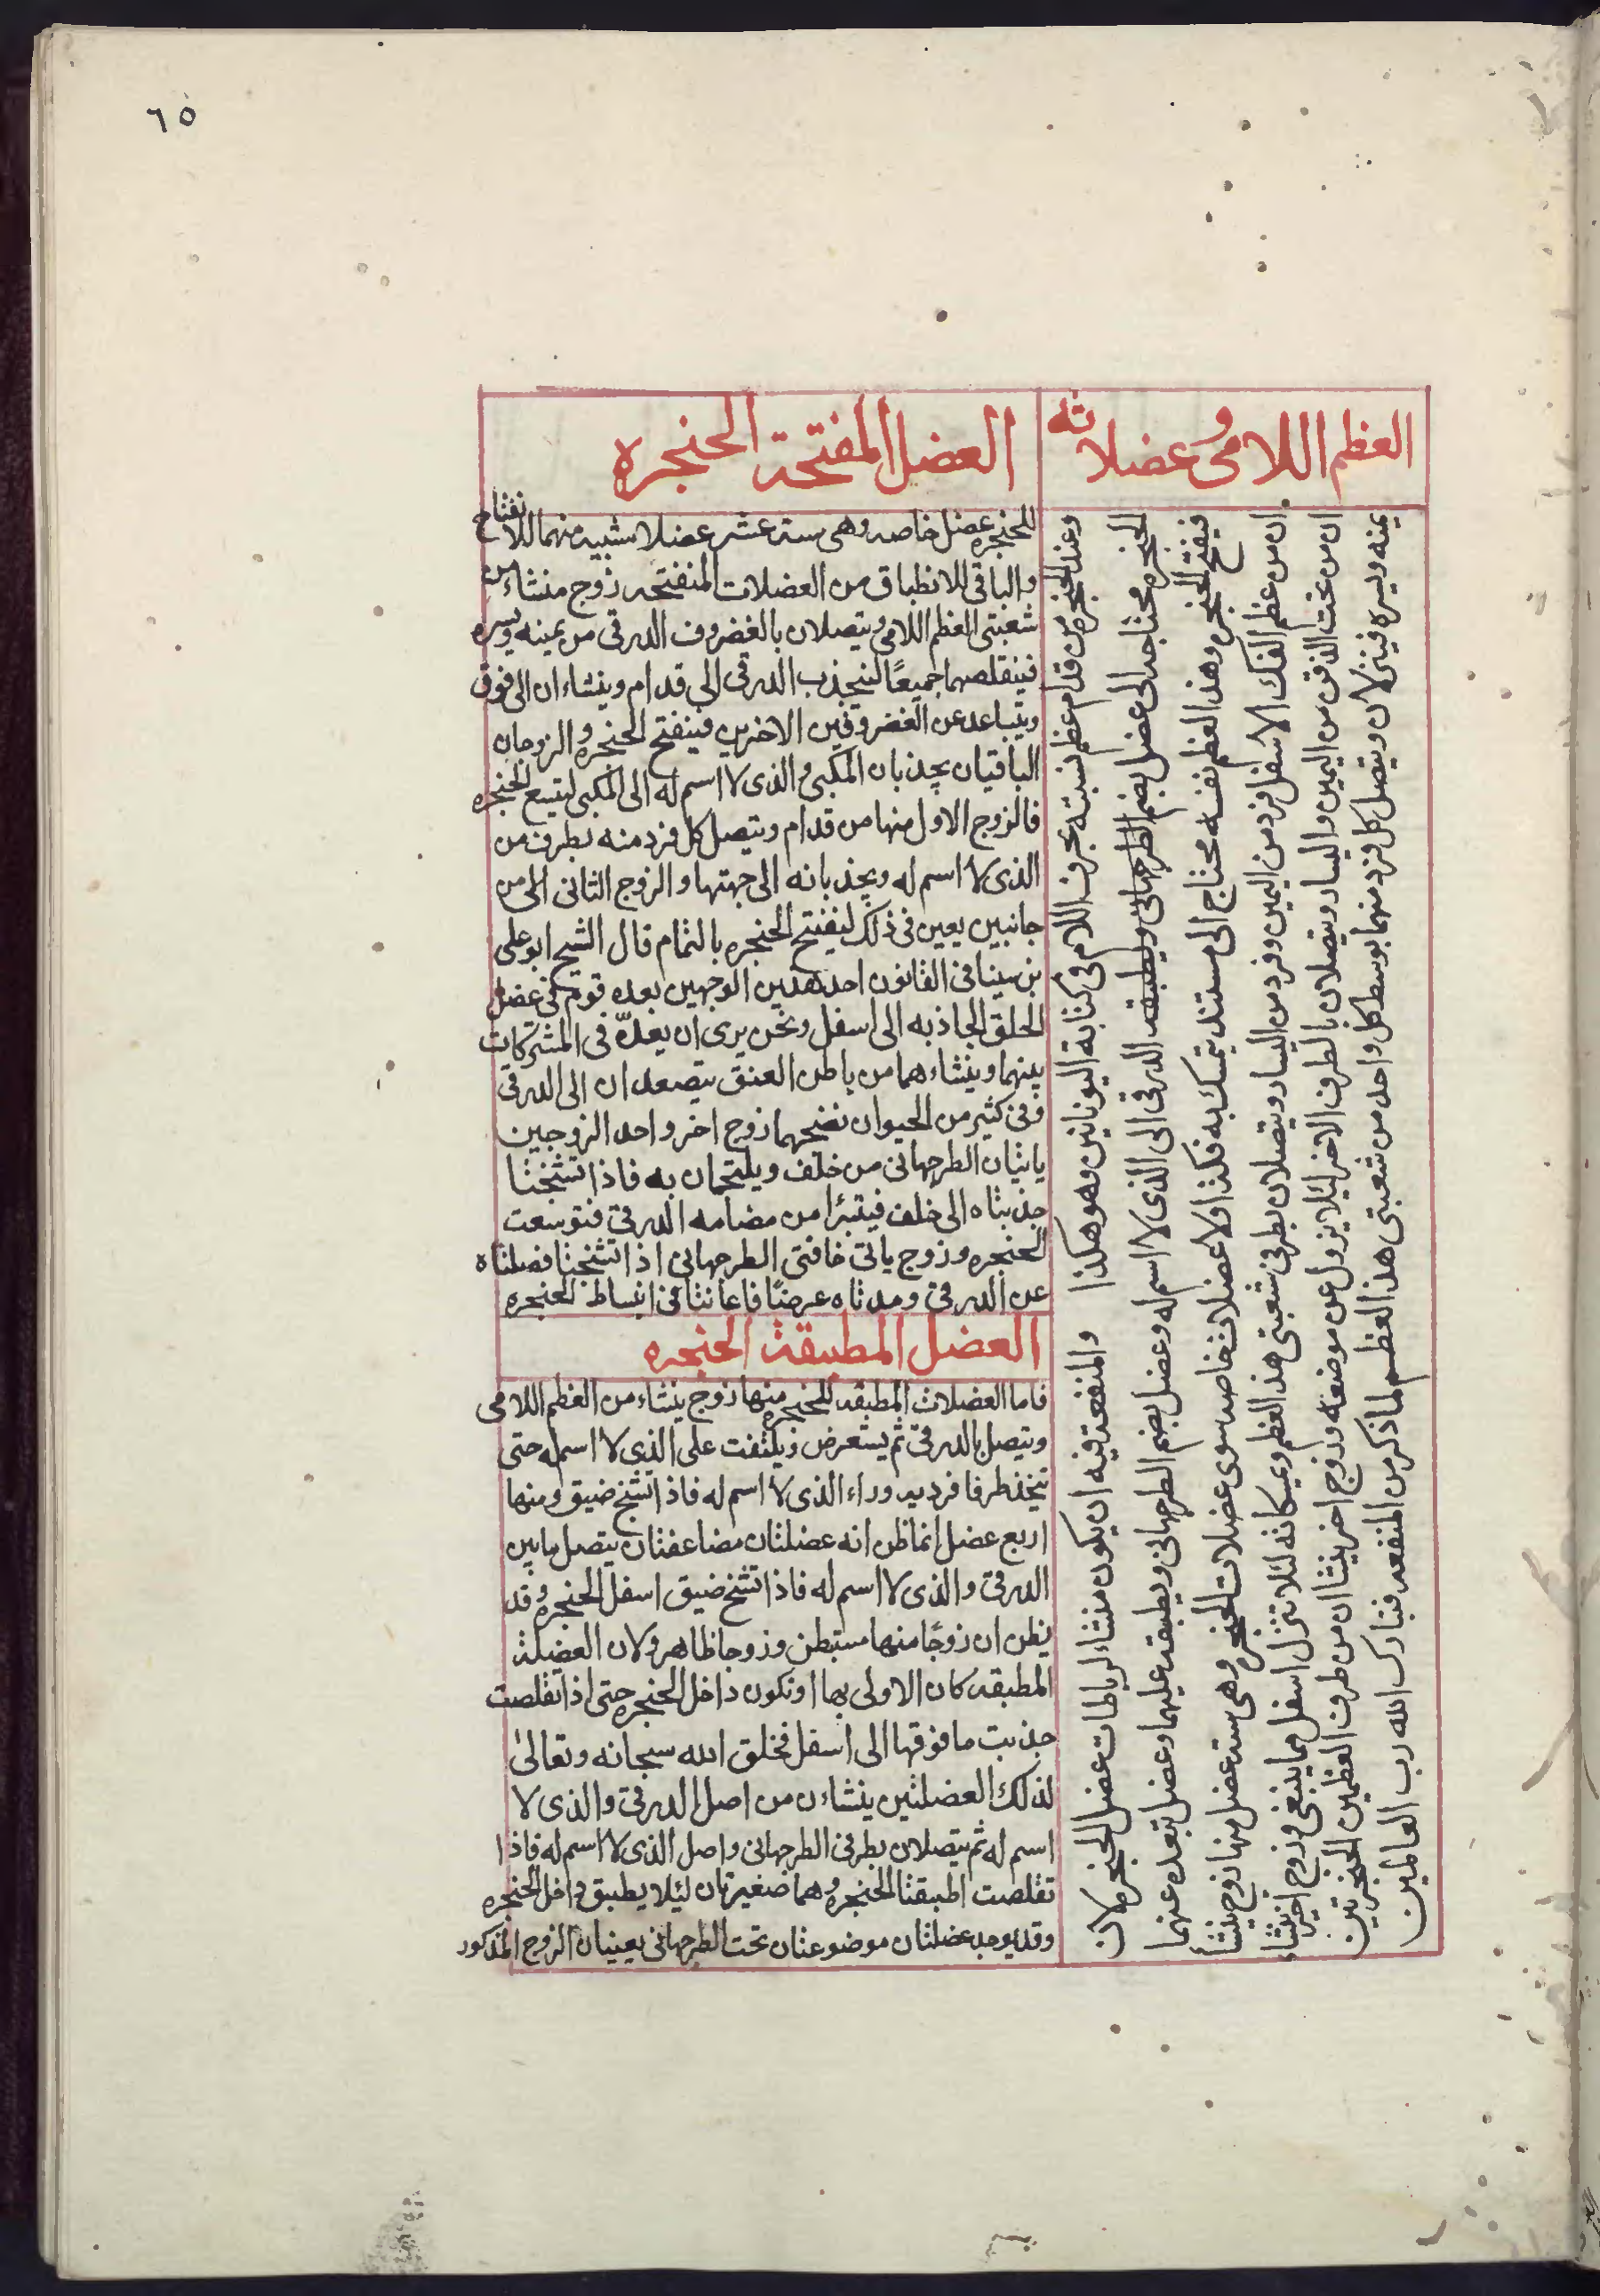 ٦٥
العظم اللامى وعضلاته
وعند الحنجره من قدام عظم نسبته بحرف اللام فى كتابة اليونانين وهو هكذا والمنفعة فيه ان يكون منشاء لرباطات عضل الحنجره لان
الحنجره محتاجه الى عضل يضم الطرجهانى ويطبقه الدرقى الى الذى لا اسم له وعضل يضم الطرجهانى ويطبقه عليهما وعضل تبعده عنهما
فيفتح الحنجره وهذا العظم نفسه محتاج الى مستند يتمسك به فكذا ولا عضلات خاصه سوى عضلات الحنجره وهى سته عضل منها زوج ينشأ
ان من عظم الفك الاسفل فرد من اليمين وفرد من اليسار ويتصلان بطرفى شعبتى هذا العظم ويمسكانه لئلا تنزل اسفل مما ينبغى وزوج اخر ينشاء
ان من تحت الذقن من اليمين واليسار ويتصلان بالطرف الاخر ليلا يزول عن موضعه وزوج اخر ينشاان من طرف العظمين الحنجرتين
يمنه ويسره فينزلان ويتصل كل فرد منهما بوسط كل واحد من شعبتى هذا العظم لما ذكر من المنفعه فتبارك الله رب العالمين
العضل المفتحة الحنجره
للحنجره عضل خاصه وهى سته عشر عضلا شبيه منهما للانفتاح
والباقى للانطباق من العضلات المنفتحه زوج منشاء من
شعبتى العظم اللامى ويتصلان بالغضروف الدرقى من يمينه ويسره
فينقلصهما جميعًا لينجذب الدرقى الى قدام وينشاء ان الى فوق
ويتباعد عن الغضروفين الاخرين فينفتح الحنجره والزوجان
الباقيان يجذبان المكبى والذى لا اسم له الى المكبى ليتسع الحنجره
فالزوج الاول منها من قدام ويتصل كل فرد منه بطرف من
الذى لا اسم له ويجذبانه الى جهتها والزوج الثانى الى من
جانبين يعين فى ذلك ليفتح الحنجره بالتمام قال الشيخ ابو على
بن سينا فى القانون احد هذين الوجهين بعده قوم فى عضل
الحلق الجاذبه الى اسفل ونحن يرى ان يعدّه فى المشتركات
بينهما وينشاءهما من باطن العنق يتصعدان الى الدرقى
ففى كثير من الحيوان نضحهما زوج اخر واحد الزوجين
ياتيان الطرجهانى من خلف ويلتحمان به فاذا تشنجتا
جذبتاه الى خلف فيتبرا من مضامه الدرقى فتوسعت
الحنجره وزوج ياتى حافتى الطرجهانى اذا تشنجتا فصلتاه
عن الدرقى ومدتاه عرضًا فاعانتا فى انبساط الحنجره
العضل المطبقة الحنجره
فاما العضلات المطبقه للحنجره منها زوج ينشاء من العظم اللامى
ويتصل بالدرقى ثم يستعرض ويلتفت على الذى لا اسم له حتى
يتخذ طرفا فرديه وراء الذى لا اسم له فاذا تشنج ضيق ومنها
اربع عضل انما ظن انه عضلتان مضاعفتان يتصل ما بين
الدرقى والذى لا اسم له فاذا تشنج ضيق اسفل الحنجره وقد
يظن ان زوجًا منهما مستبطن وزوجا ظاهر ولان العضلة
المطبقه كان الاولى بها ان تكون داخل الحنجره حتى اذا تقلصت
جذبت ما فوقها الى اسفل فخلق الله سبحانه وتعالى
لذلك العضلتين ينشاءن من اصل الدرقى والذى لا
اسم له ثم يتصلان بطرفى الطرجهانى واصل الذى لا اسم له فاذا
تقلصت اطبقتا الحنجره وهما صغيرتان ليلا يطبق داخل الحنجره
وقد يوجد عضلتان موضوعتان تحت الطرجهانى يعينان الزوج المذكور